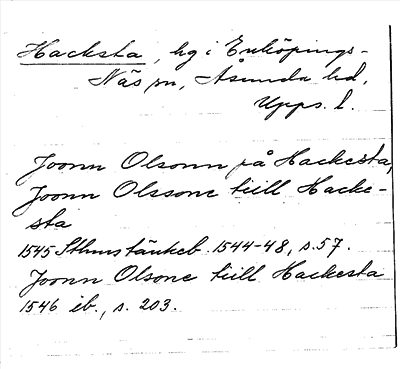 Hacksta, hg i Enköpings-
Näs sn, Åsunda hd,
Upps. l.
Joonn Olsonn på Hackesta,
Joonn Olssone tiill Hacke-
sta
1545 Sthms tänkeb. 1544-48, s. 57.
Joonn Olsone tiill Hackesta
1546 ib., s. 203.